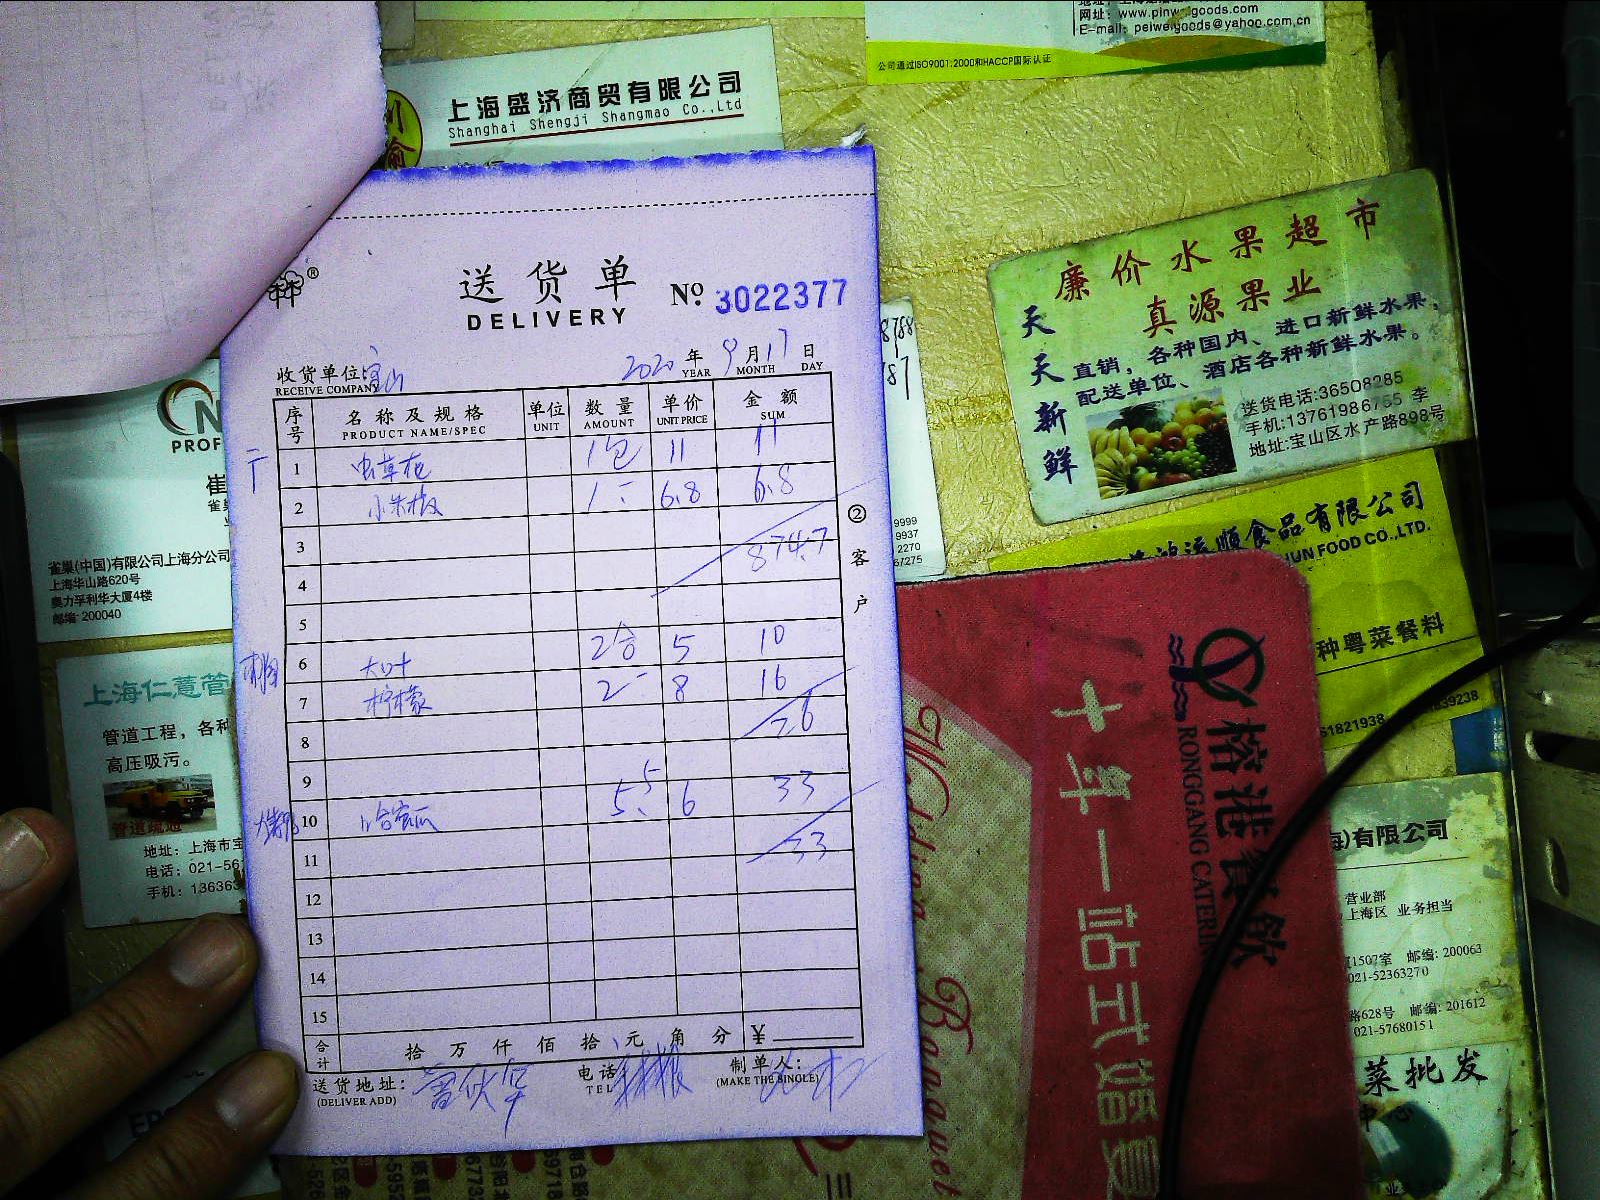 地址: 上海
网址: www.pinweigoods.com
E-mail: peiweigoods@yahoo.com.cn
公司通过ISO9001:2000和HACCP国际认证
上海盛济商贸有限公司
Shanghai Shengji Shangmao Co.,Ltd
川渝
送货单 №. 3022377
DELIVERY
收货单位 宝山 2020 年 9 月 17 日
RECEIVE COMPANY YEAR MONTH DAY
序号 名称及规格 单位 数量 单价 金额
PRODUCT NAME/SPEC UNIT AMOUNT UNIT PRICE SUM
1 虫草花 1包 11 11
2 小米椒 1 6.8 6.8
3 874.7
4
5
6 大叶 2合 5 10
7 柠檬 2 8 16
8 26
9
10 哈密瓜 5.5 6 33
11 33
12
13
14
15
合计 拾 万 仟 佰 拾 元 角 分 ¥
送货地址: 电话 制单人:
(DELIVER ADD) TEL (MAKE THE BINGLE)
② 客户
廉价水果超市
真源果业
天天新鲜
直销,各种国内、进口新鲜水果,
配送单位、酒店各种新鲜水果。
送货电话:36508285
手机:13761986765 李
地址:宝山区水产路898号
PROF
崔
雀巢
雀巢(中国)有限公司上海分公司
上海华山路620号
奥力孚利华大厦4楼
邮编: 200040
上海仁薏管
管道工程,各种
高压吸污。
管道疏通
地址: 上海市宝
电话: 021-56
手机: 13636
9999
9937
2270
67275
顺食品有限公司
JUN FOOD CO.,LTD.
种粤菜餐料
61821938
39238
榕港餐飲
RONGGANG CATERI
十年一站式婚宴
Wedding
Banquet
海)有限公司
营业部
上海区 业务担当
1507室 邮编: 200063
021-52363270
路628号 邮编: 201612
021-57680151
菜批发
中心